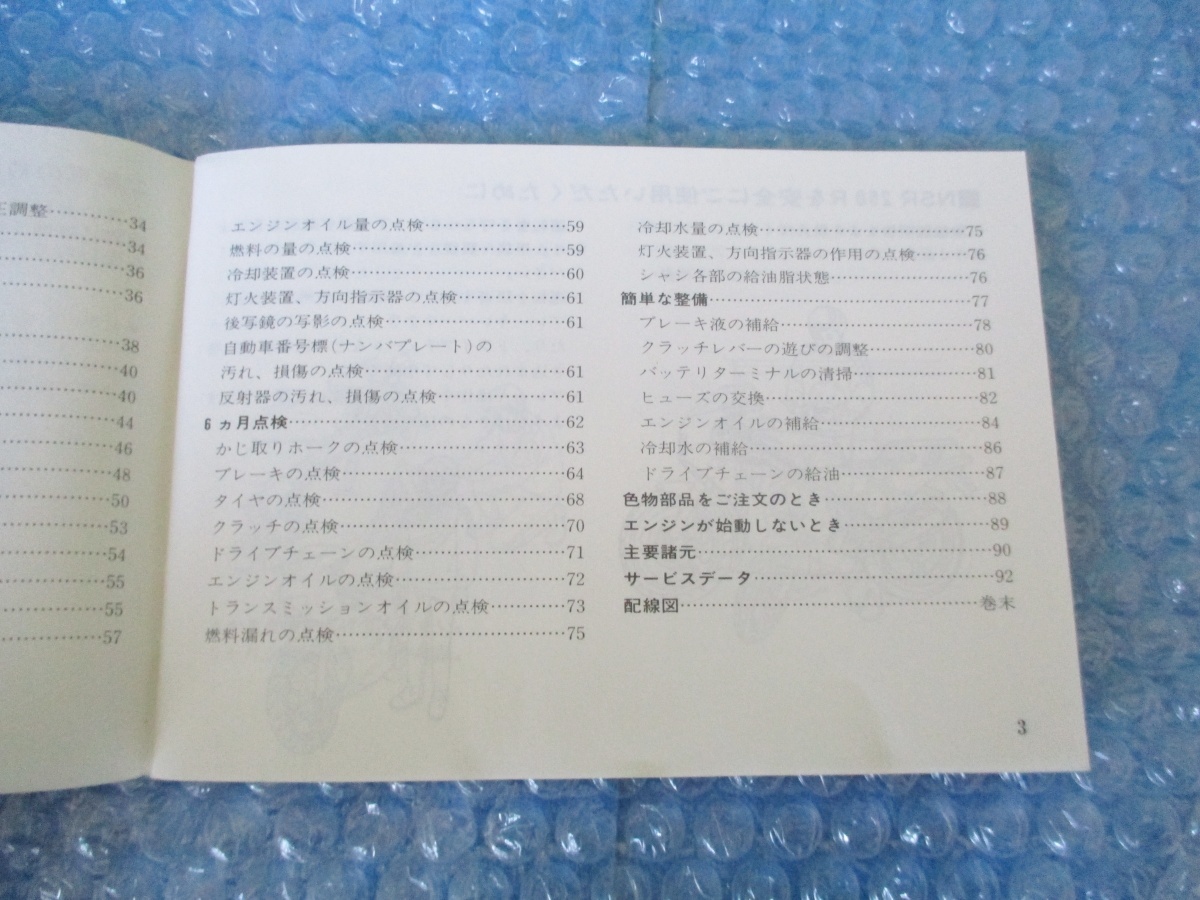 圧調整…………34
34
36
36
38
40
40
44
46
48
50
53
54
55
55
57
エンジンオイル量の点検…………59
燃料の量の点検…………59
冷却装置の点検…………60
灯火装置、方向指示器の点検…………61
後写鏡の写影の点検…………61
自動車番号標(ナンバプレート)の
汚れ、損傷の点検…………61
反射器の汚れ、損傷の点検…………61
6ヵ月点検…………62
かじ取りホークの点検…………63
ブレーキの点検…………64
タイヤの点検…………68
クラッチの点検…………70
ドライブチェーンの点検…………71
エンジンオイルの点検…………72
トランスミッションオイルの点検…………73
燃料漏れの点検…………75
冷却水量の点検…………75
灯火装置、方向指示器の作用の点検…………76
シャシ各部の給油脂状態…………76
簡単な整備…………77
ブレーキ液の補給…………78
クラッチレバーの遊びの調整…………80
バッテリターミナルの清掃…………81
ヒューズの交換…………82
エンジンオイルの補給…………84
冷却水の補給…………86
ドライブチェーンの給油…………87
色物部品をご注文のとき…………88
エンジンが始動しないとき…………89
主要諸元…………90
サービスデータ…………92
配線図…………巻末
3